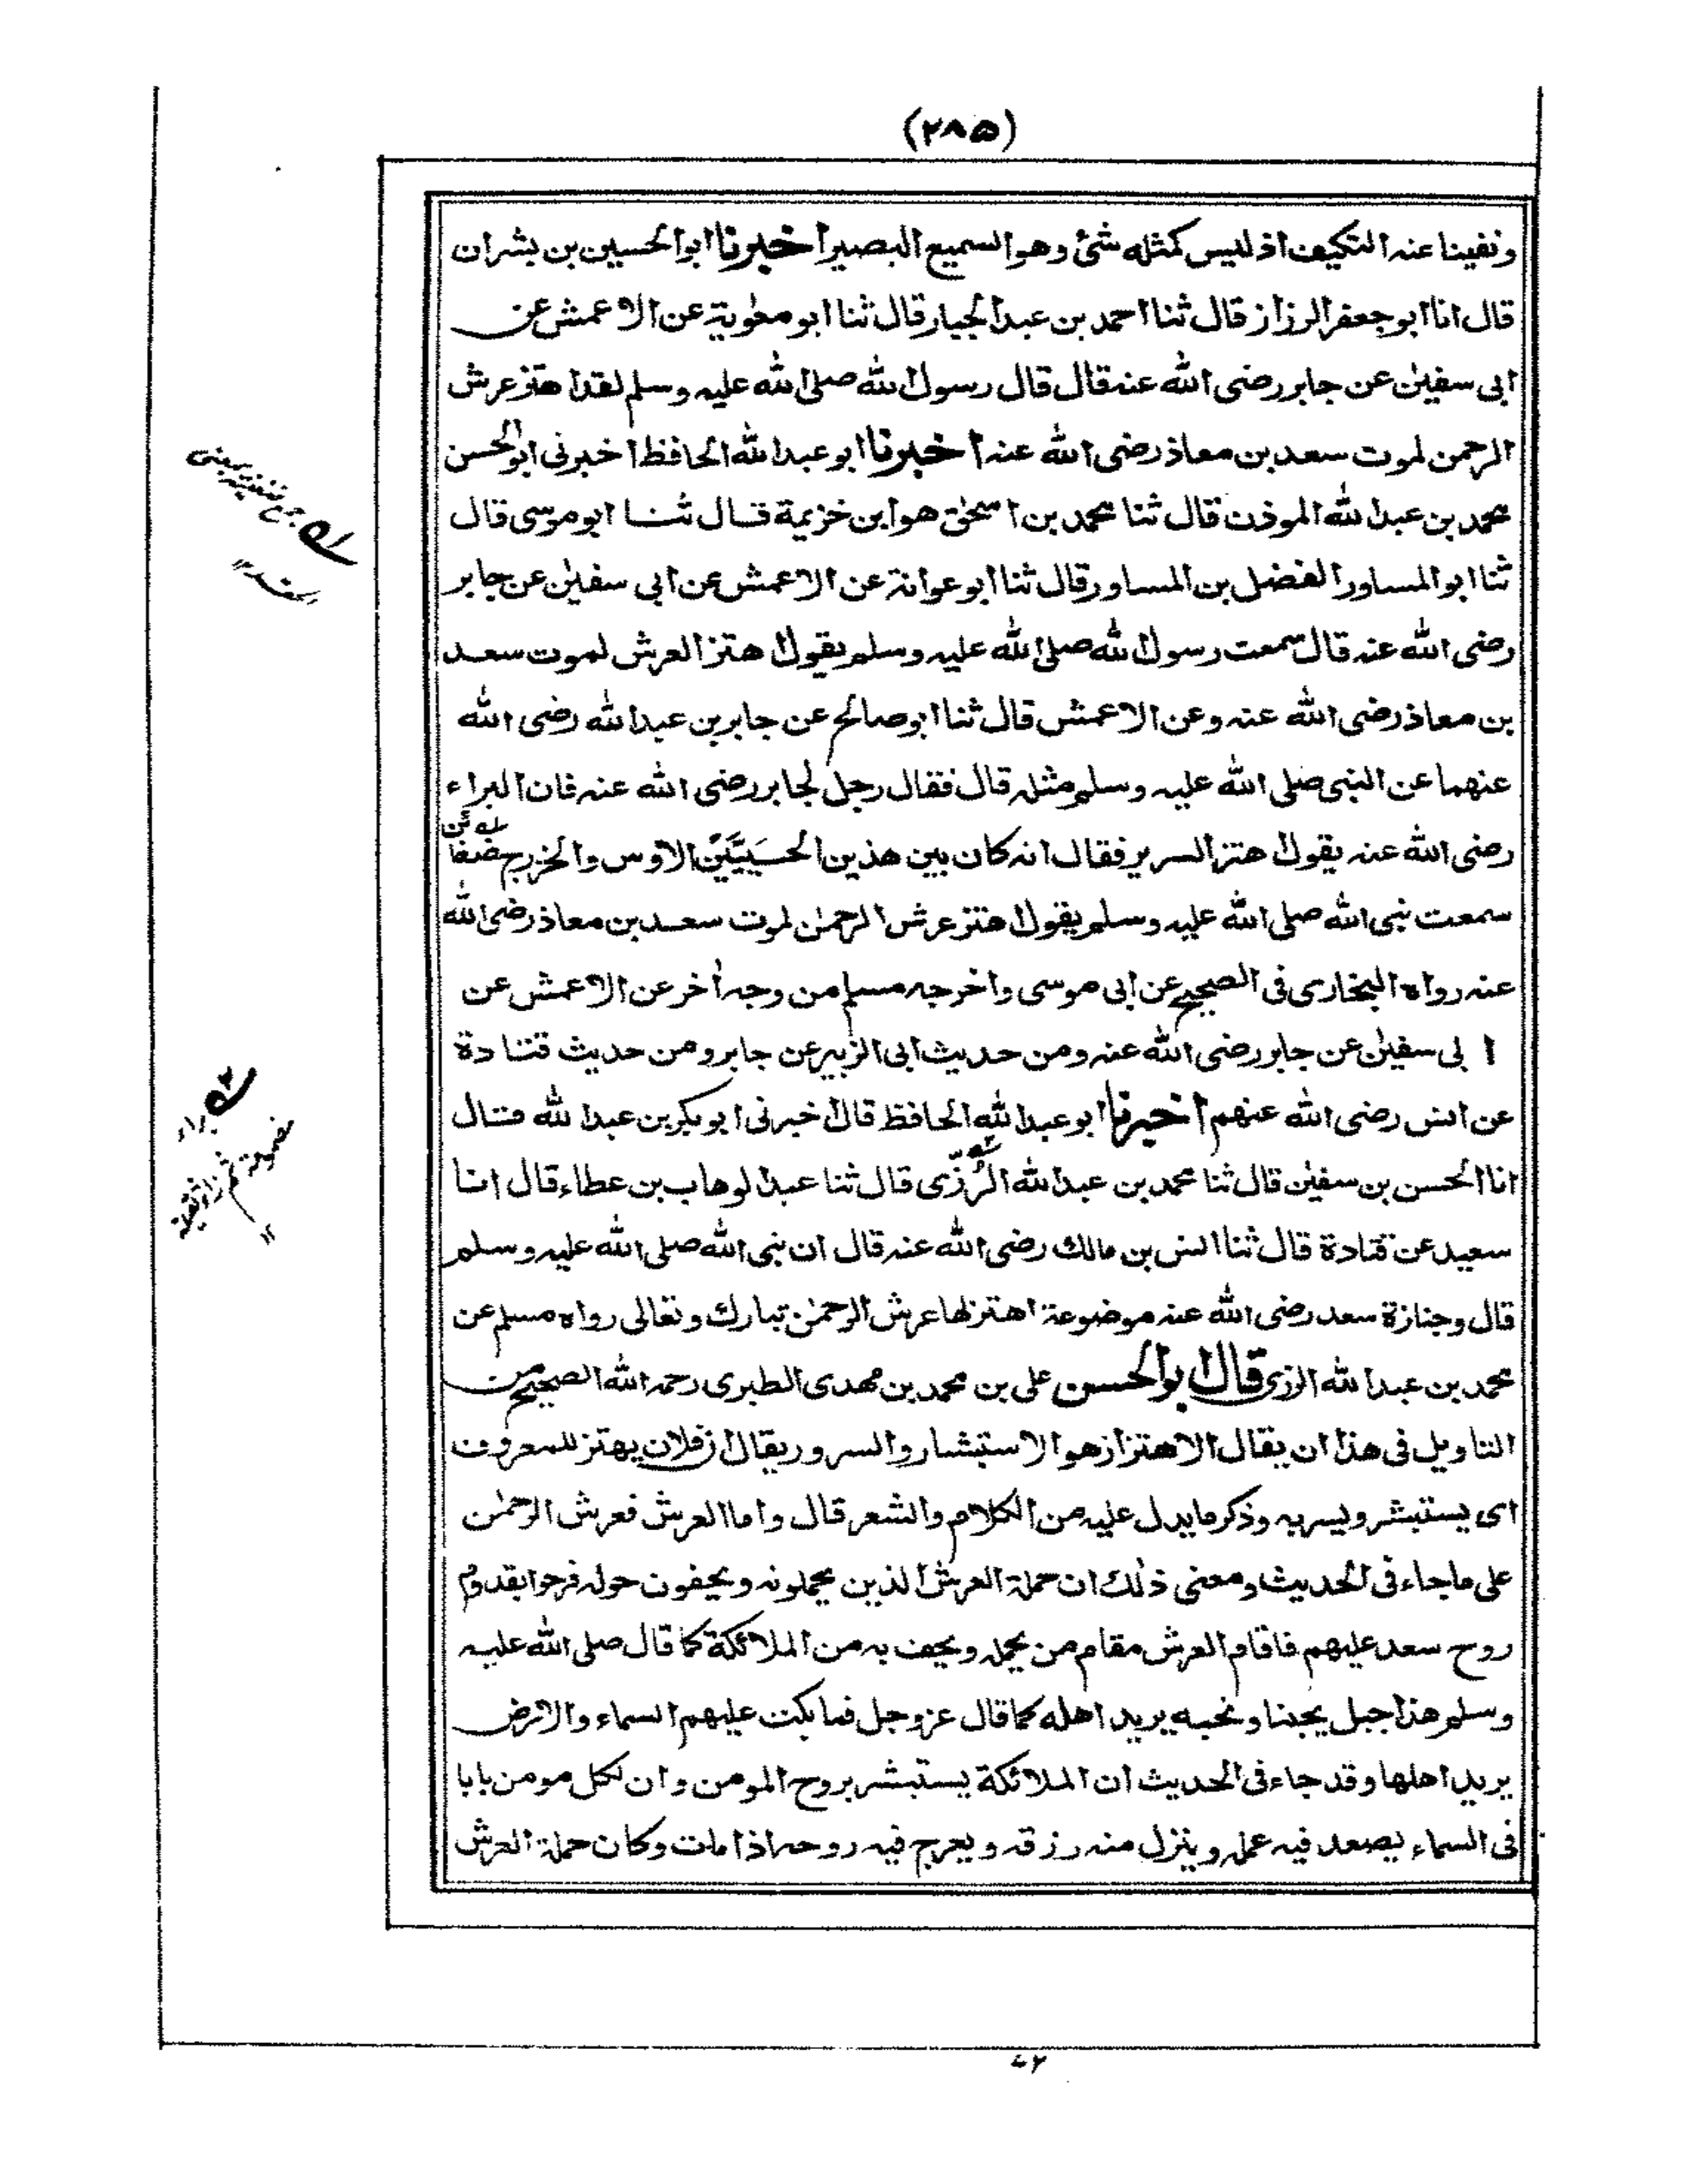 (٢٨٥)
ونفينا عنه التكييف اذ ليس كمثله شئ وهو السميع البصير اخبرنا ابو الحسين بن بشران
قال انا ابو جعفر الرزاز قال ثنا احمد بن عبد الجبار قال ثنا ابو معٰوية عن الاعمش عن
ابى سفيٰن عن جابر رضى الله عنه قال قال رسول الله صلى الله عليه وسلم لقد اهتز عرش
الرحمن لموت سعد بن معاذ رضى الله عنه اخبرنا ابو عبد الله الحافظ اخبرنى ابو الحسن
محمد بن عبد الله الموذن قال ثنا محمد بن اسحٰق هو ابن خزيمة قال ثنا ابو موسى قال
ثنا ابو المساور الفضل بن المساور قال ثنا ابو عوانة عن الاعمش عن ابى سفيٰن عن جابر
رضى الله عنه قال سمعت رسول الله صلى الله عليه وسلم يقول اهتز العرش لموت سعد
بن معاذ رضى الله عنه وعن الاعمش قال ثنا ابو صالح عن جابر بن عبد الله رضى الله
عنهما عن النبى صلى الله عليه وسلم مثله قال فقال رجل لجابر رضى الله عنه فان البراء
رضى الله عنه يقول اهتز السرير فقال انه كان بين هذين الحسيين الاوس والخزرج ضغائن
سمعت نبى الله صلى الله عليه وسلم يقول اهتز عرش الرحمٰن لموت سعد بن معاذ رضى الله
عنه رواه البخارى فى الصحيح عن ابى موسى واخرجه مسلم من وجه اٰخر عن الاعمش عن
ابى سفيٰن عن جابر رضى الله عنه ومن حديث ابى الزبير عن جابر ومن حديث قتادة
عن انس رضى الله عنهم اخبرنا ابو عبد الله الحافظ قال اخبرنى ابو بكر بن عبد الله قال
انا الحسن بن سفيٰن قال ثنا محمد بن عبد الله الرُزّى قال ثنا عبد الوهاب بن عطاء قال انا
سعيد عن قتادة قال ثنا انس بن مالك رضى الله عنه قال ان نبى الله صلى الله عليه وسلم
قال وجنازة سعد رضى الله عنه موضوعة اهتز لها عرش الرحمٰن تبارك وتعالى رواه مسلم عن
محمد بن عبد الله الرزى قال ابو الحسن على بن محمد بن مهدى الطبرى رحمه الله الصحيح من
التاويل فى هذا ان يقال الاهتزاز هو الاستبشار والسرور يقال ان فلان يهتز للمعروف
اى يستبشر ويسر به وذكر ما يدل عليه من الكلام والشعر قال واما العرش فعرش الرحمٰن
على ما جاء فى الحديث ومعنى ذٰلك ان حملة العرش الذين يحملونه ويحفون حوله فرحوا بقدوم
روح سعد عليهم فاقام العرش مقام من يحمله ويحف به من الملائكة كما قال صلى الله عليه
وسلم هذا جبل يحبنا ونحبه يريد اهله كما قال عزوجل فما بكت عليهم السماء والارض
يريد اهلها وقد جاء فى الحديث ان الملائكة يستبشر بروح المومن وان لكل مومن بابا
فى السماء يصعد فيه عمله وينزل منه رزقه ويعرج فيه روحه اذا مات وكان حملة العرش
٧٢